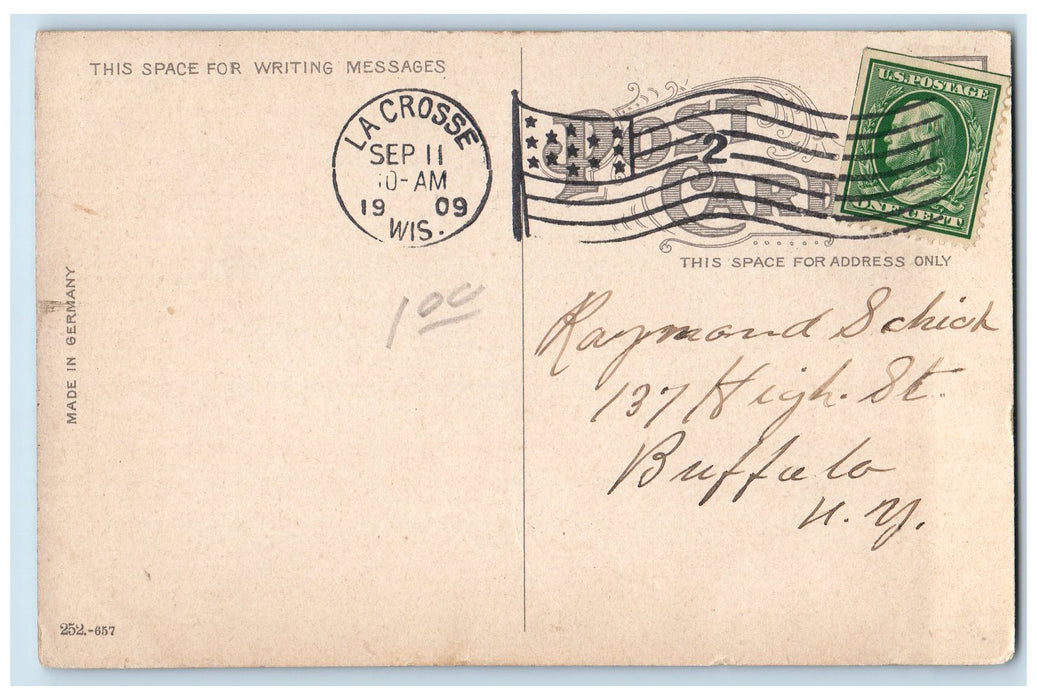 THIS SPACE FOR WRITING MESSAGES
LA CROSSE
SEP 11
10-AM
19 09
WIS.
2
POST
CARD
U.S. POSTAGE
ONE CENT
THIS SPACE FOR ADDRESS ONLY
1 00
Raymond Schick
137 High. St.
Buffalo
N. Y.
MADE IN GERMANY
252.-657